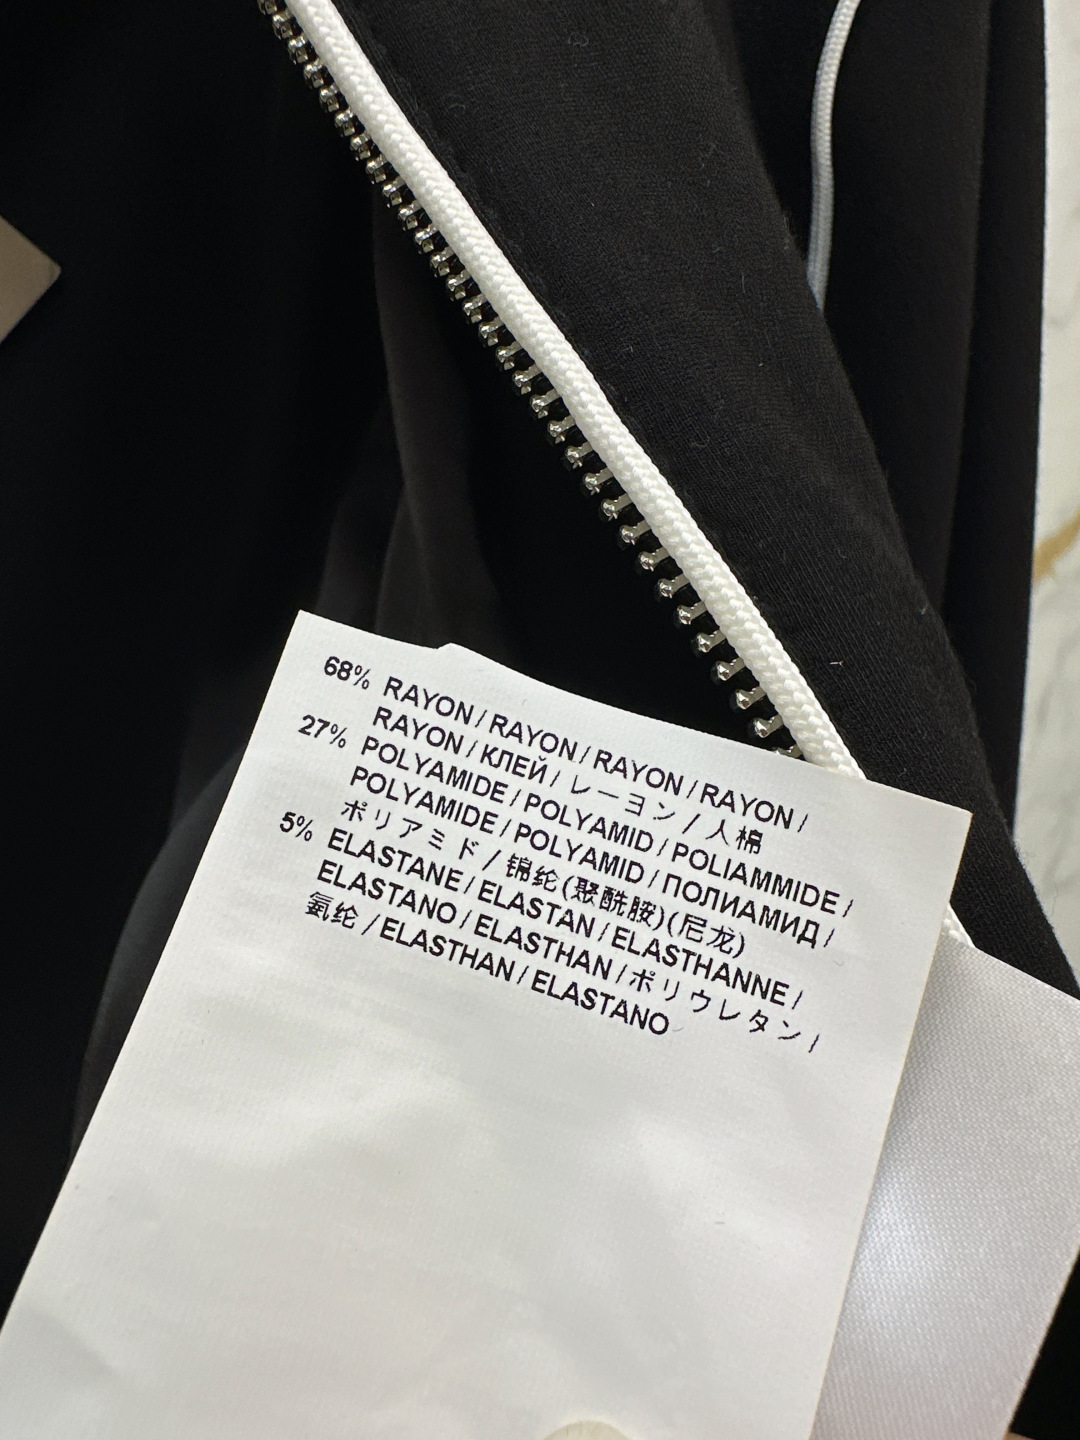 68% RAYON / RAYON / RAYON / RAYON /
RAYON / КЛЕЙ / レーヨン / 人棉
27% POLYAMIDE / POLYAMID / POLIAMMIDE /
POLYAMIDE / POLYAMID / ПОЛИАМИД /
ポリアミド / 锦纶(聚酰胺)(尼龙)
5% ELASTANE / ELASTAN / ELASTHANNE /
ELASTANO / ELASTHAN / ポリウレタン /
氨纶 / ELASTHAN / ELASTANO